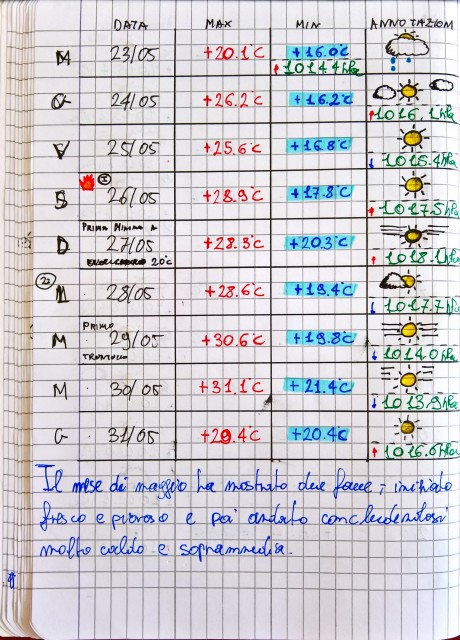 DATA MAX MIN ANNOTAZIONI
M 23/05 +20.1°C +16.0°C
↑1014.4hPa
G 24/05 +26.2°C +16.2°C
↑1016.1hPa
V 25/05 +25.6°C +16.8°C
↓1015.4hPa
I
S 26/05 +28.9°C +17.8°C
↑1017.5hPa
PRIMA MINIMA A
D 27/05 +28.3°C +20.3°C
20°C ↑1018.1hPa
22
L 28/05 +28.6°C +19.4°C
↓1017.7hPa
PRIMO
M 29/05 +30.6°C +19.8°C
↓1014.0hPa
M 30/05 +31.1°C +21.4°C
↓1013.9hPa
G 31/05 +29.4°C +20.4°C
↑1016.0hPa
Il mese di maggio ha mostrato due facce; iniziato
fresco e piovoso e poi andato concludendosi
molto caldo e sopramedia.